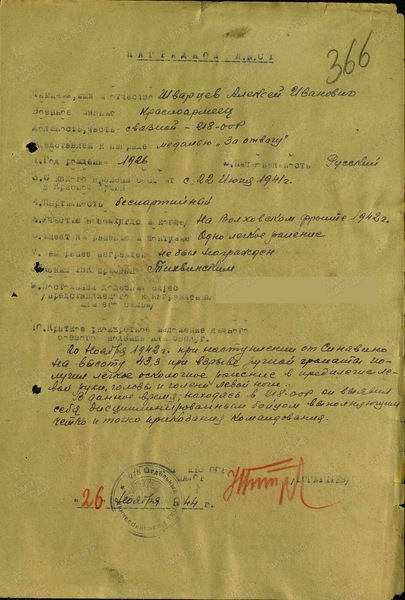 НАГРАДНОЙ ЛИСТ
366
Фамилия, имя и отчество Шварцев Алексей Иванович
Военное звание Красноармеец
Должность, часть связной - 218-ООР
Представлен к награде медалью "За отвагу"
1. Год рождения 1926 2. Национальность Русский
3. С какого времени состоит с 22 Июня 1941 г.
в Красной Армии
4. Партийность беспартийный
5. Участие в На Волховском фронте 1942 г.
6. Имеет ли ранения и контузии Одно легкое ранение
7. Чем ранее награжден Не был награжден
8. Каким РВК призван Тихвинским
9. Постоянный домашний адрес
представляемого к награждению
и его семьи
10. Краткое конкретное изложение личного
боевого подвига или заслуг.
20 Ноября 1942 г. при наступлении от Синявино
на высоту 43,3 при взрыве ручной гранаты по-
лучил легкое осколочное ранение в предплечье ле-
вой руки, головы и голени левой ноги.
В данное время, находясь в 218-ООР он выявил
себя дисциплинированным бойцом выполняющим
четко и точно приказания Командования.
"26" Ноября 1944 г.